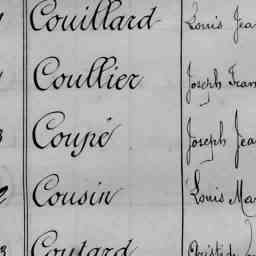 Couillard Louis Jea
Coullier Joseph Fran
Coupé Joseph Jea
Cousin Louis Ma
Coutard